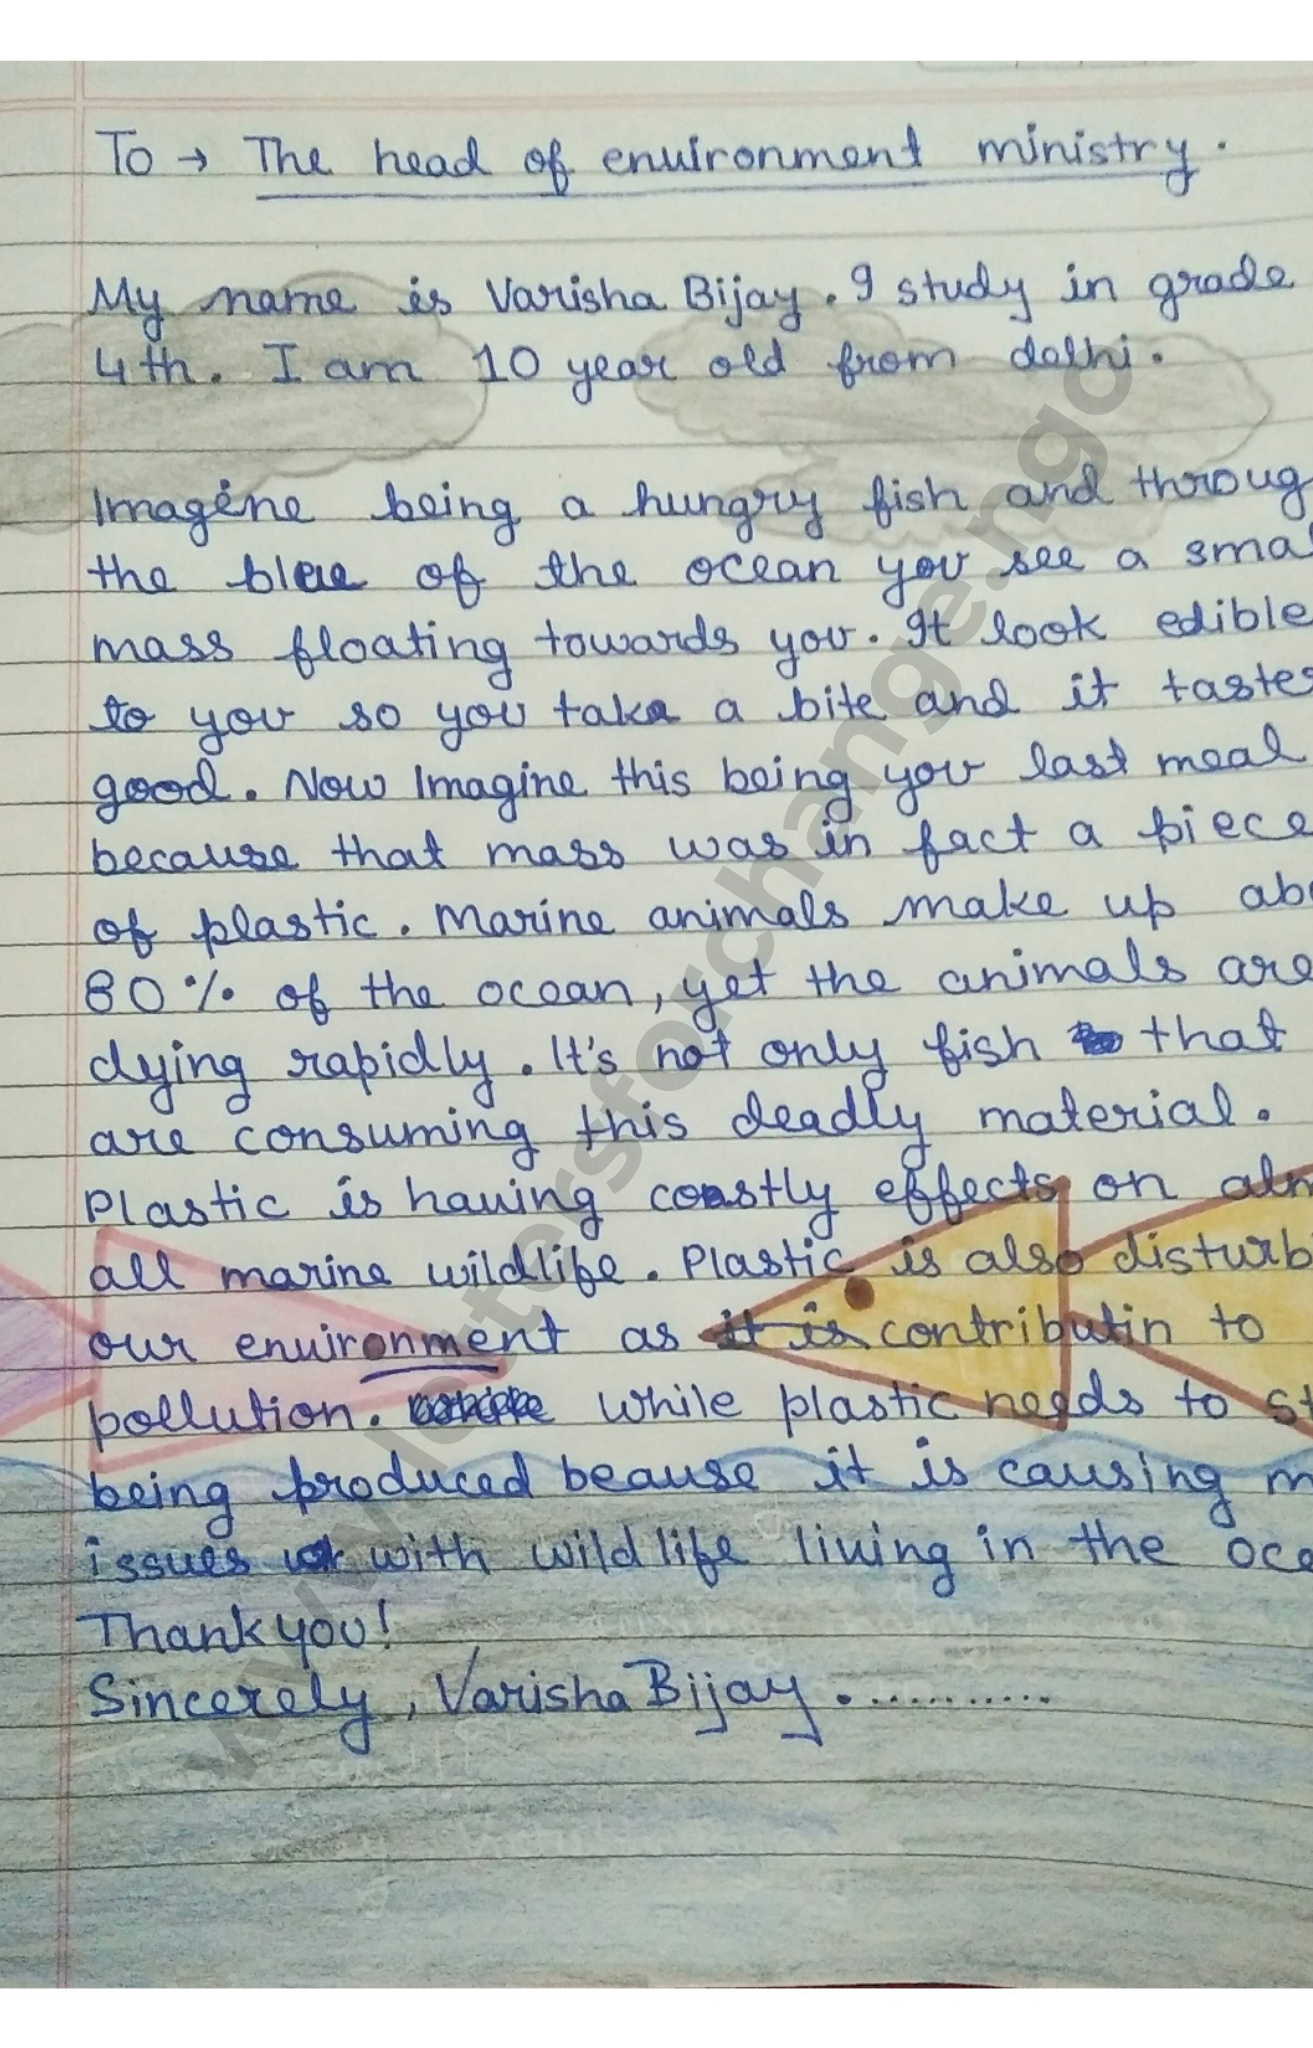 To → The head of environment ministry.
My name is Varisha Bijay. I study in grade
4th. I am 10 year old from delhi.
Imagine being a hungry fish and throug
the blue of the ocean you see a smal
mass floating towards you. It look edible
to you so you take a bite and it tastes
good. Now Imagine this being you last meal
because that mass was in fact a piece
of plastic. Marine animals make up abo
80% of the ocean, yet the animals are
dying rapidly. It's not only fish that
are consuming this deadly material.
Plastic is having costly effects on alm
all marine wildlife. Plastic is also disturbi
our environment as it is contributin to
pollution. while plastic needs to st
being produced beause it is causing m
issues with wildlife living in the ocea
Thank you!
Sincerely, Varisha Bijay . ...........
www.lettersforchange.ngo